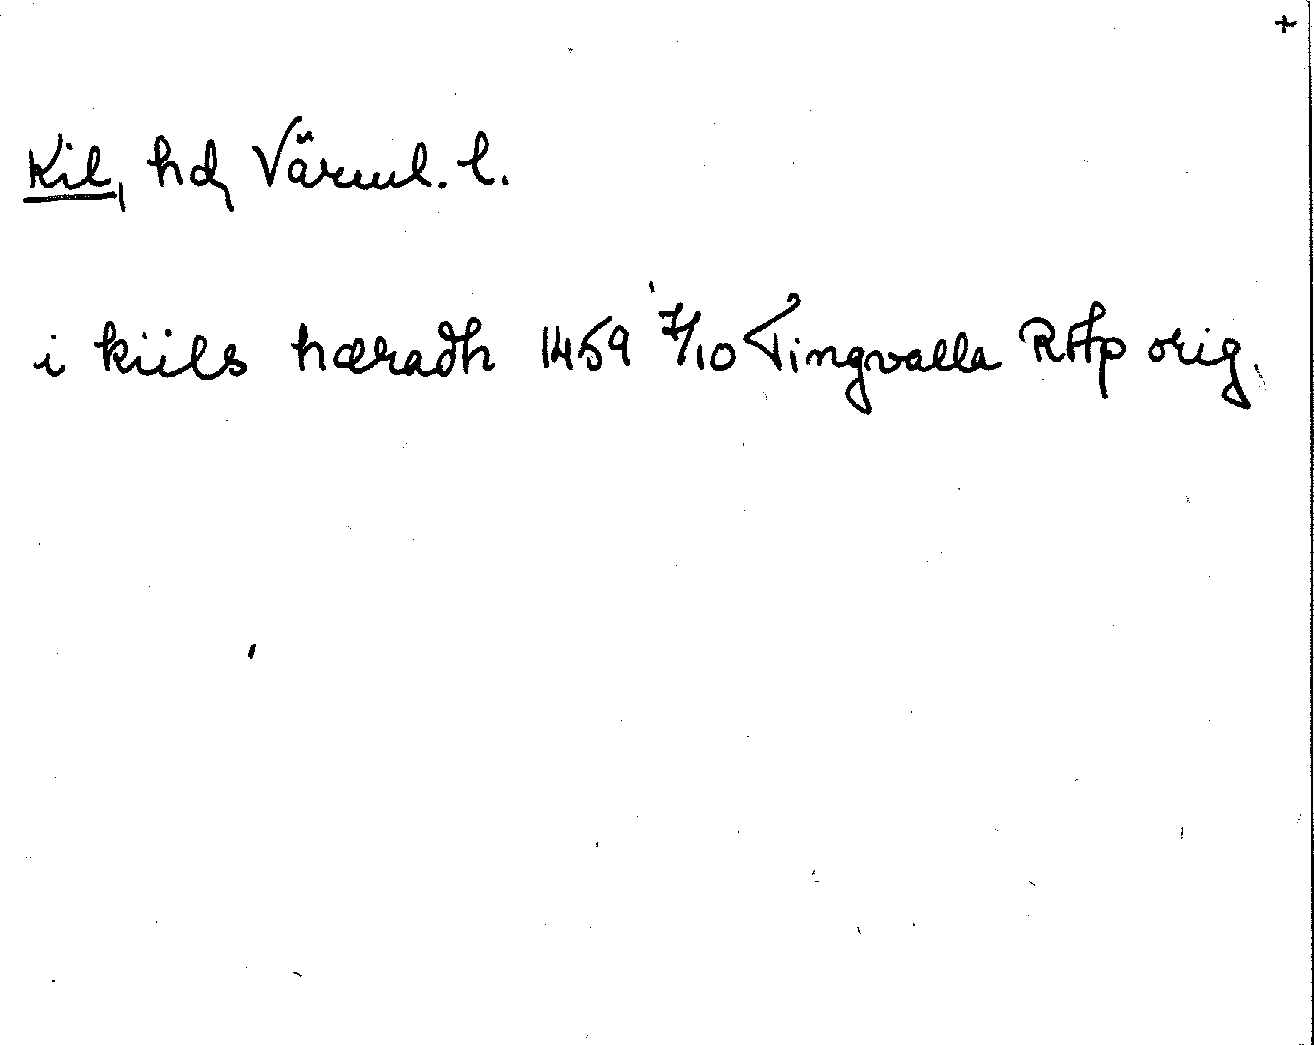 +
Kil, hd, Värml. l.
i kiils hæradh 1459 7/10 Tingvalla RAp orig.